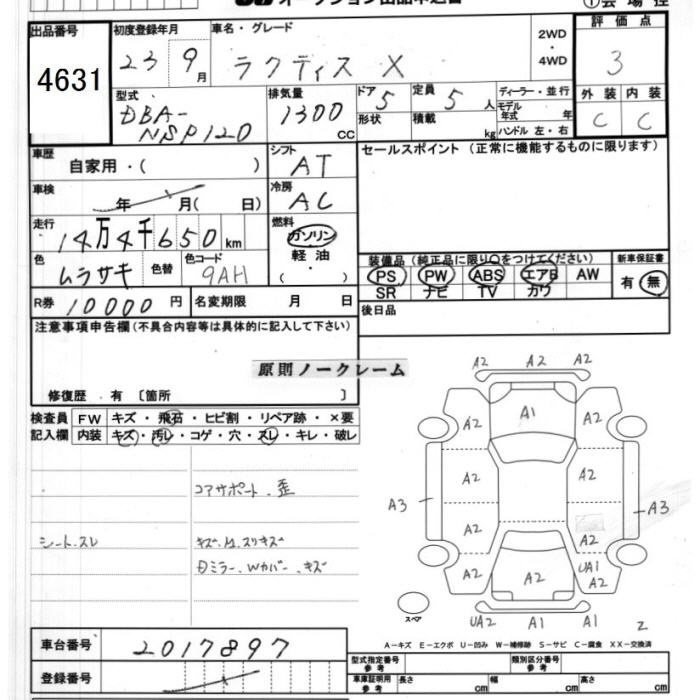 出品番号
4631
初度登録年月
23 9月
車名・グレード
ラクティス X
2WD
・
4WD
評価点
3
型式
DBA-
NSP120
排気量
1300
CC
ドア 5
定員 5 人
形状
積載 kg
ディーラー・並行
モデル
年式 年
ハンドル 左・右
外装 内装
C C
車歴
自家用・( )
シフト
AT
セールスポイント (正常に機能するものに限ります)
車検
年 月( 日)
冷房
AC
走行
14万4千650 km
燃料
ガソリン
軽油
( ・ )
色
ムラサキ
色替
色コード
9AH
装備品 (純正品に限り〇をつけてください)
新車保証書
PS PW ABS エアB AW
SR ナビ TV カワ
有・無
R券 10000 円
名変期限 月 日
後日品
注意事項申告欄 (不具合内容等は具体的に記入して下さい)
原則ノークレーム
修復歴・有〔箇所 〕
検査員
記入欄
FW キズ・飛石・ヒビ割・リペア跡・×要
内装 キズ・汚レ・コゲ・穴・スレ・キレ・破レ
コアサポート、歪
シート、スレ
A2 A2 A2
A1
A2 A2
A2 A2
A3 A3
A2 A2
A2 A2
UA1
A2
UA2 A1 A1
スペア
A-キズ E-エクボ U-凹み W-補修跡 S-サビ C-腐食 XX-交換済
車台番号
2017897
登録番号
型式指定番号
参考
類別区分番号
参考
車庫証明用
参考
長さ cm 幅 cm 高さ cm